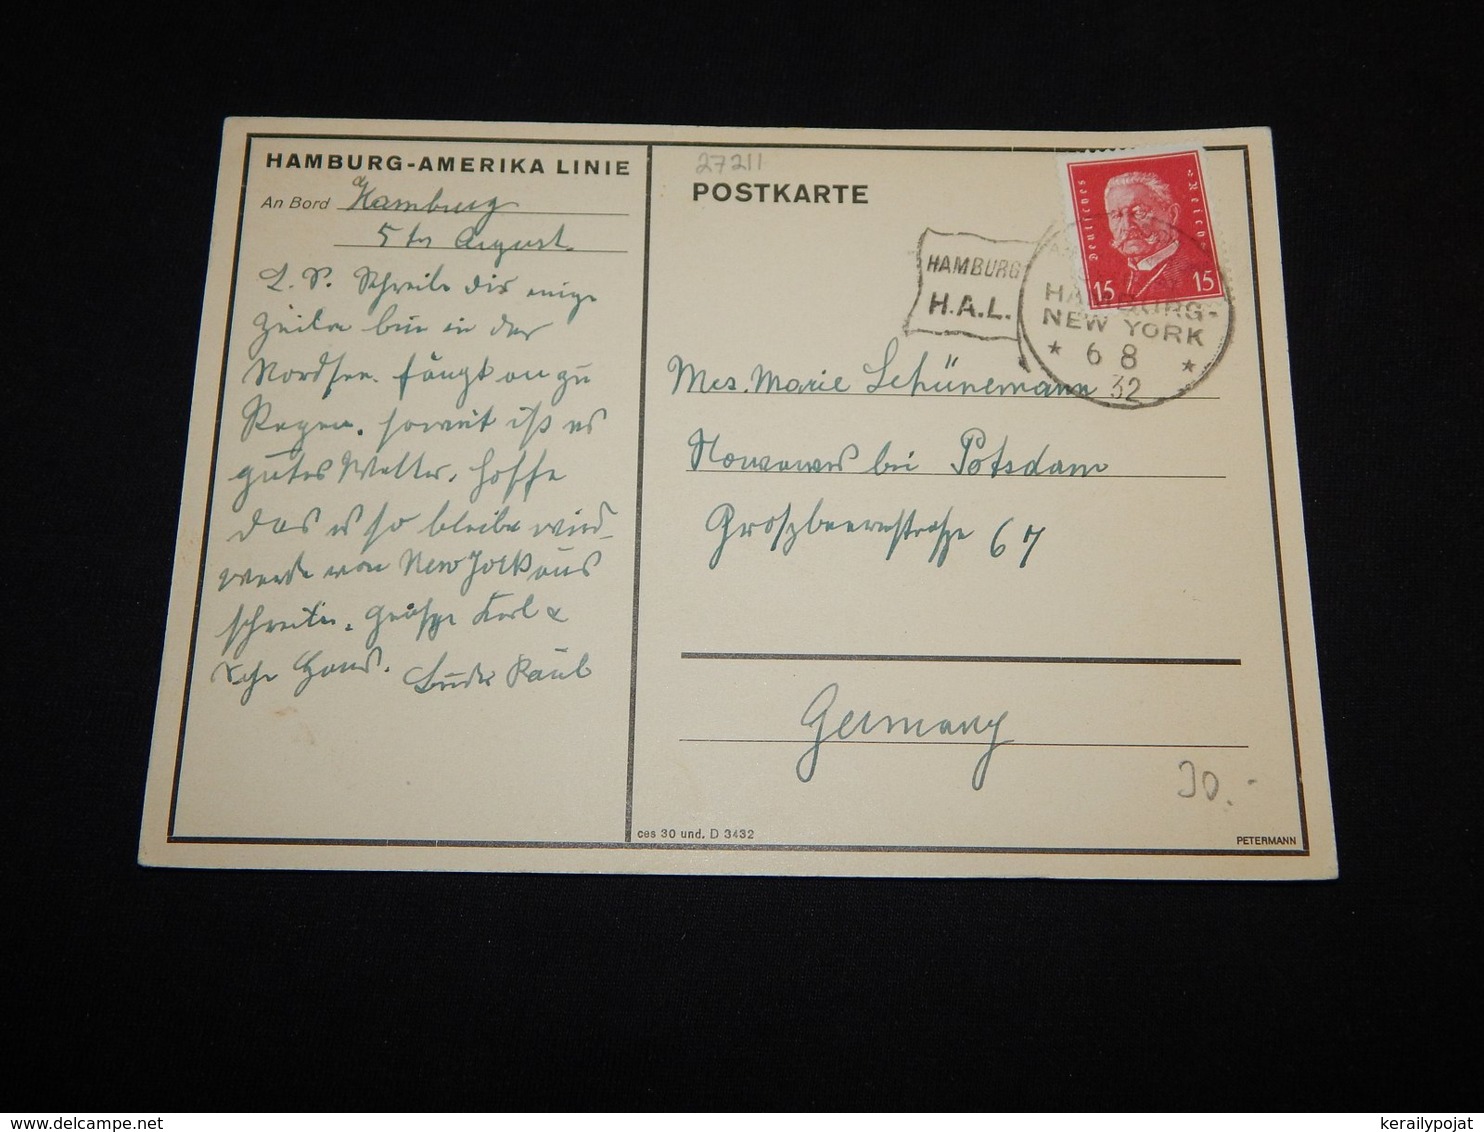 HAMBURG-AMERIKA LINIE
An Bord Hamburg
5ten August
L. S. Schreibe dir einige
Zeilen bin in der
Nordsee. fängt an zu
Regen. soweit ist es
gutes Wetter. hoffe
das es so bleiben wird
werde von New York aus
schreiben. Grüße Karl &
Bruder Paul
27211
POSTKARTE
Deutsches Reich
15 15
HAMBURG
H.A.L.
HAMBURG-
NEW YORK
* 6 8 *
32
Mrs. Marie Schünemann
Nowawes bei Potsdam
Groszbeerenstrasze 67
Germany
30.-
ces 30 und. D 3432
PETERMANN
kerailypojat